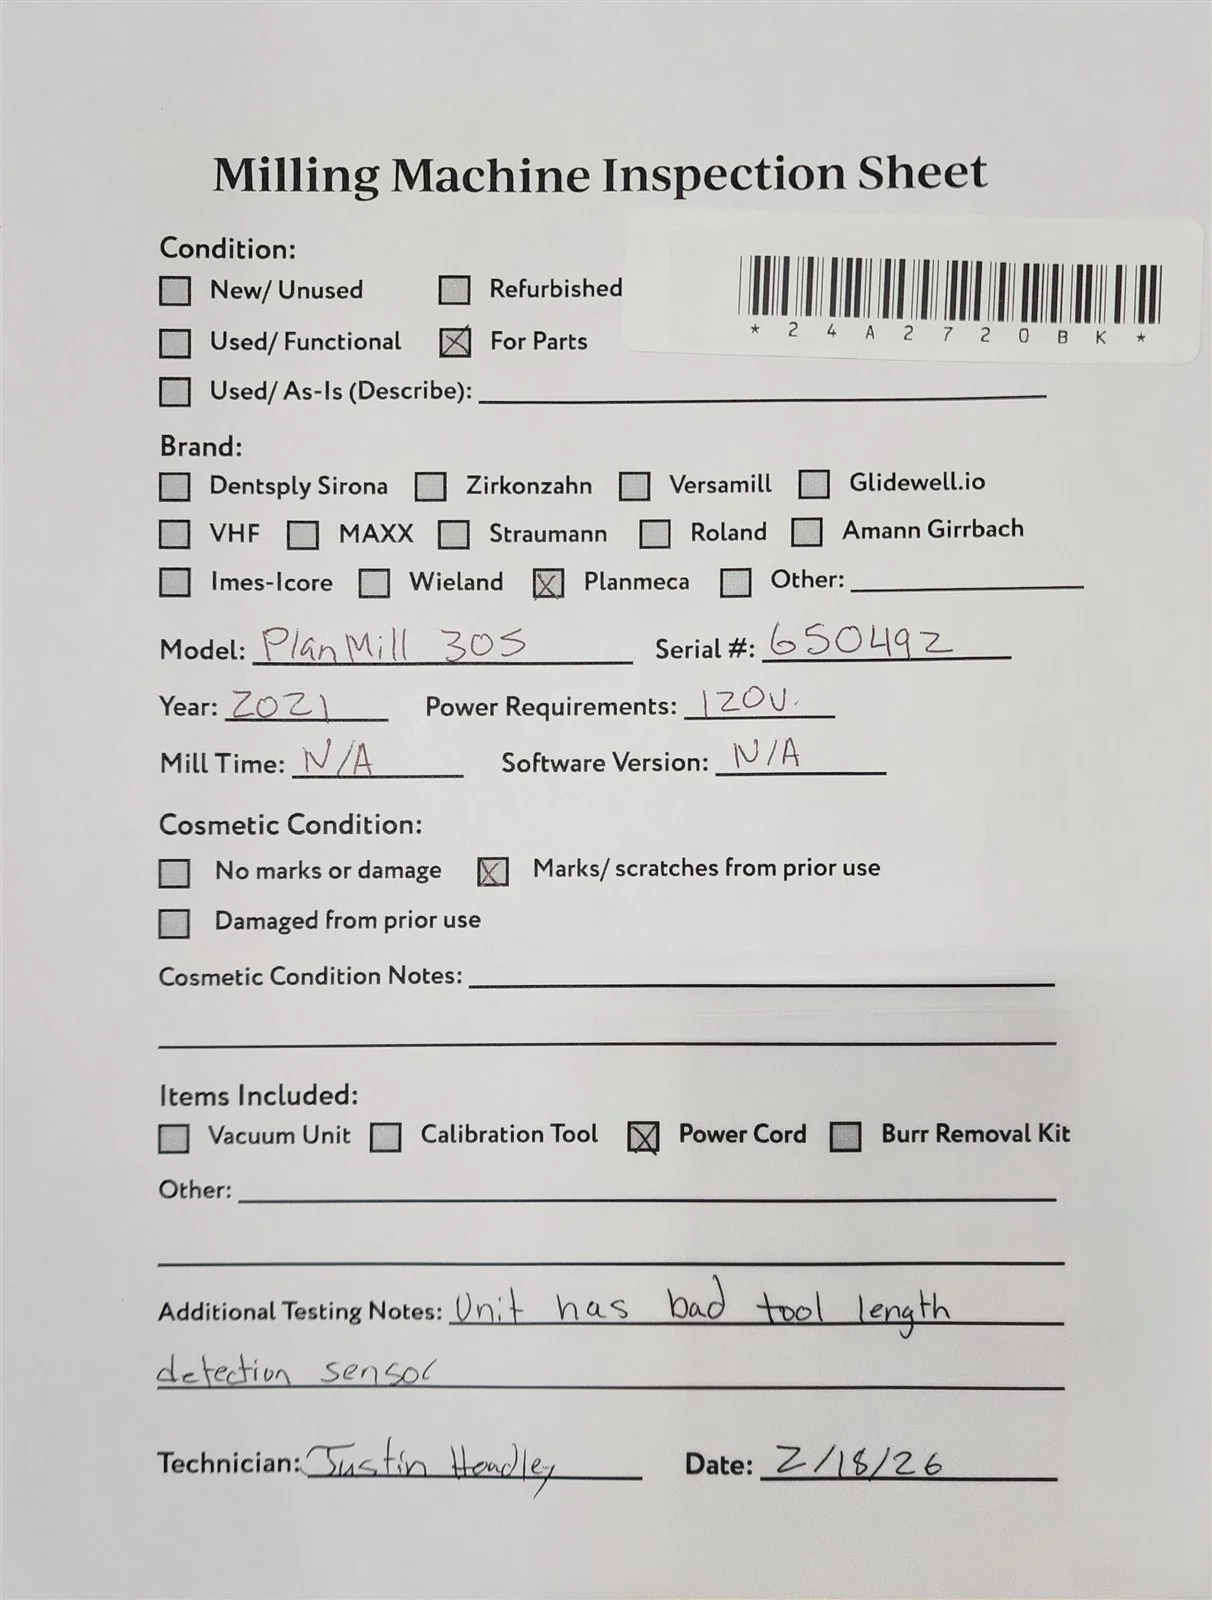 Milling Machine Inspection Sheet
Condition:
New/ Unused Refurbished
Used/ Functional For Parts
*24A2720BK*
Used/ As-Is (Describe):
Brand:
Dentsply Sirona Zirkonzahn Versamill Glidewell.io
VHF MAXX Straumann Roland Amann Girrbach
Imes-Icore Wieland Planmeca Other:
Model: PlanMill 30S Serial #: 650492
Year: 2021 Power Requirements: 120V.
Mill Time: N/A Software Version: N/A
Cosmetic Condition:
No marks or damage Marks/ scratches from prior use
Damaged from prior use
Cosmetic Condition Notes:
Items Included:
Vacuum Unit Calibration Tool Power Cord Burr Removal Kit
Other:
Additional Testing Notes: Unit has bad tool length
detection sensor
Technician: Justin Headley Date: 2/18/26